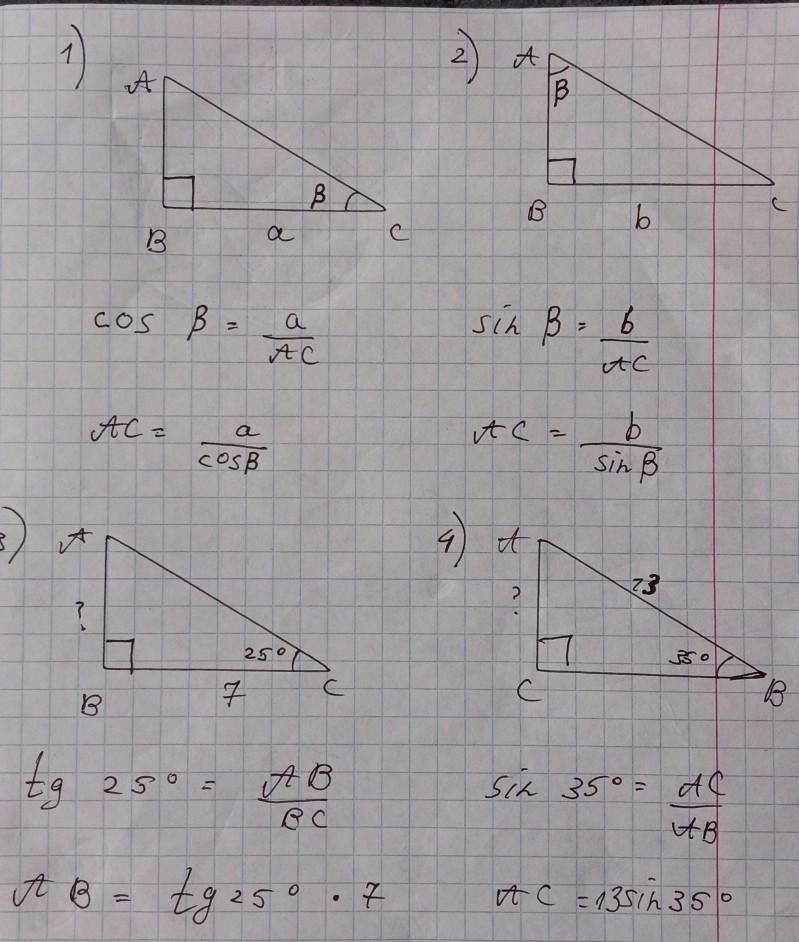 1)
A
B
a
β
C
cos β = a/AC
AC = a/cosβ
2)
A
β
B
b
C
sin β = b/AC
AC = b/sin β
3)
A
?
B
7
25°
C
tg 25° = AB/BC
AB = tg 25° · 7
4)
A
?
C
35°
B
sin 35° = AC/AB
AC = 13 sin 35°